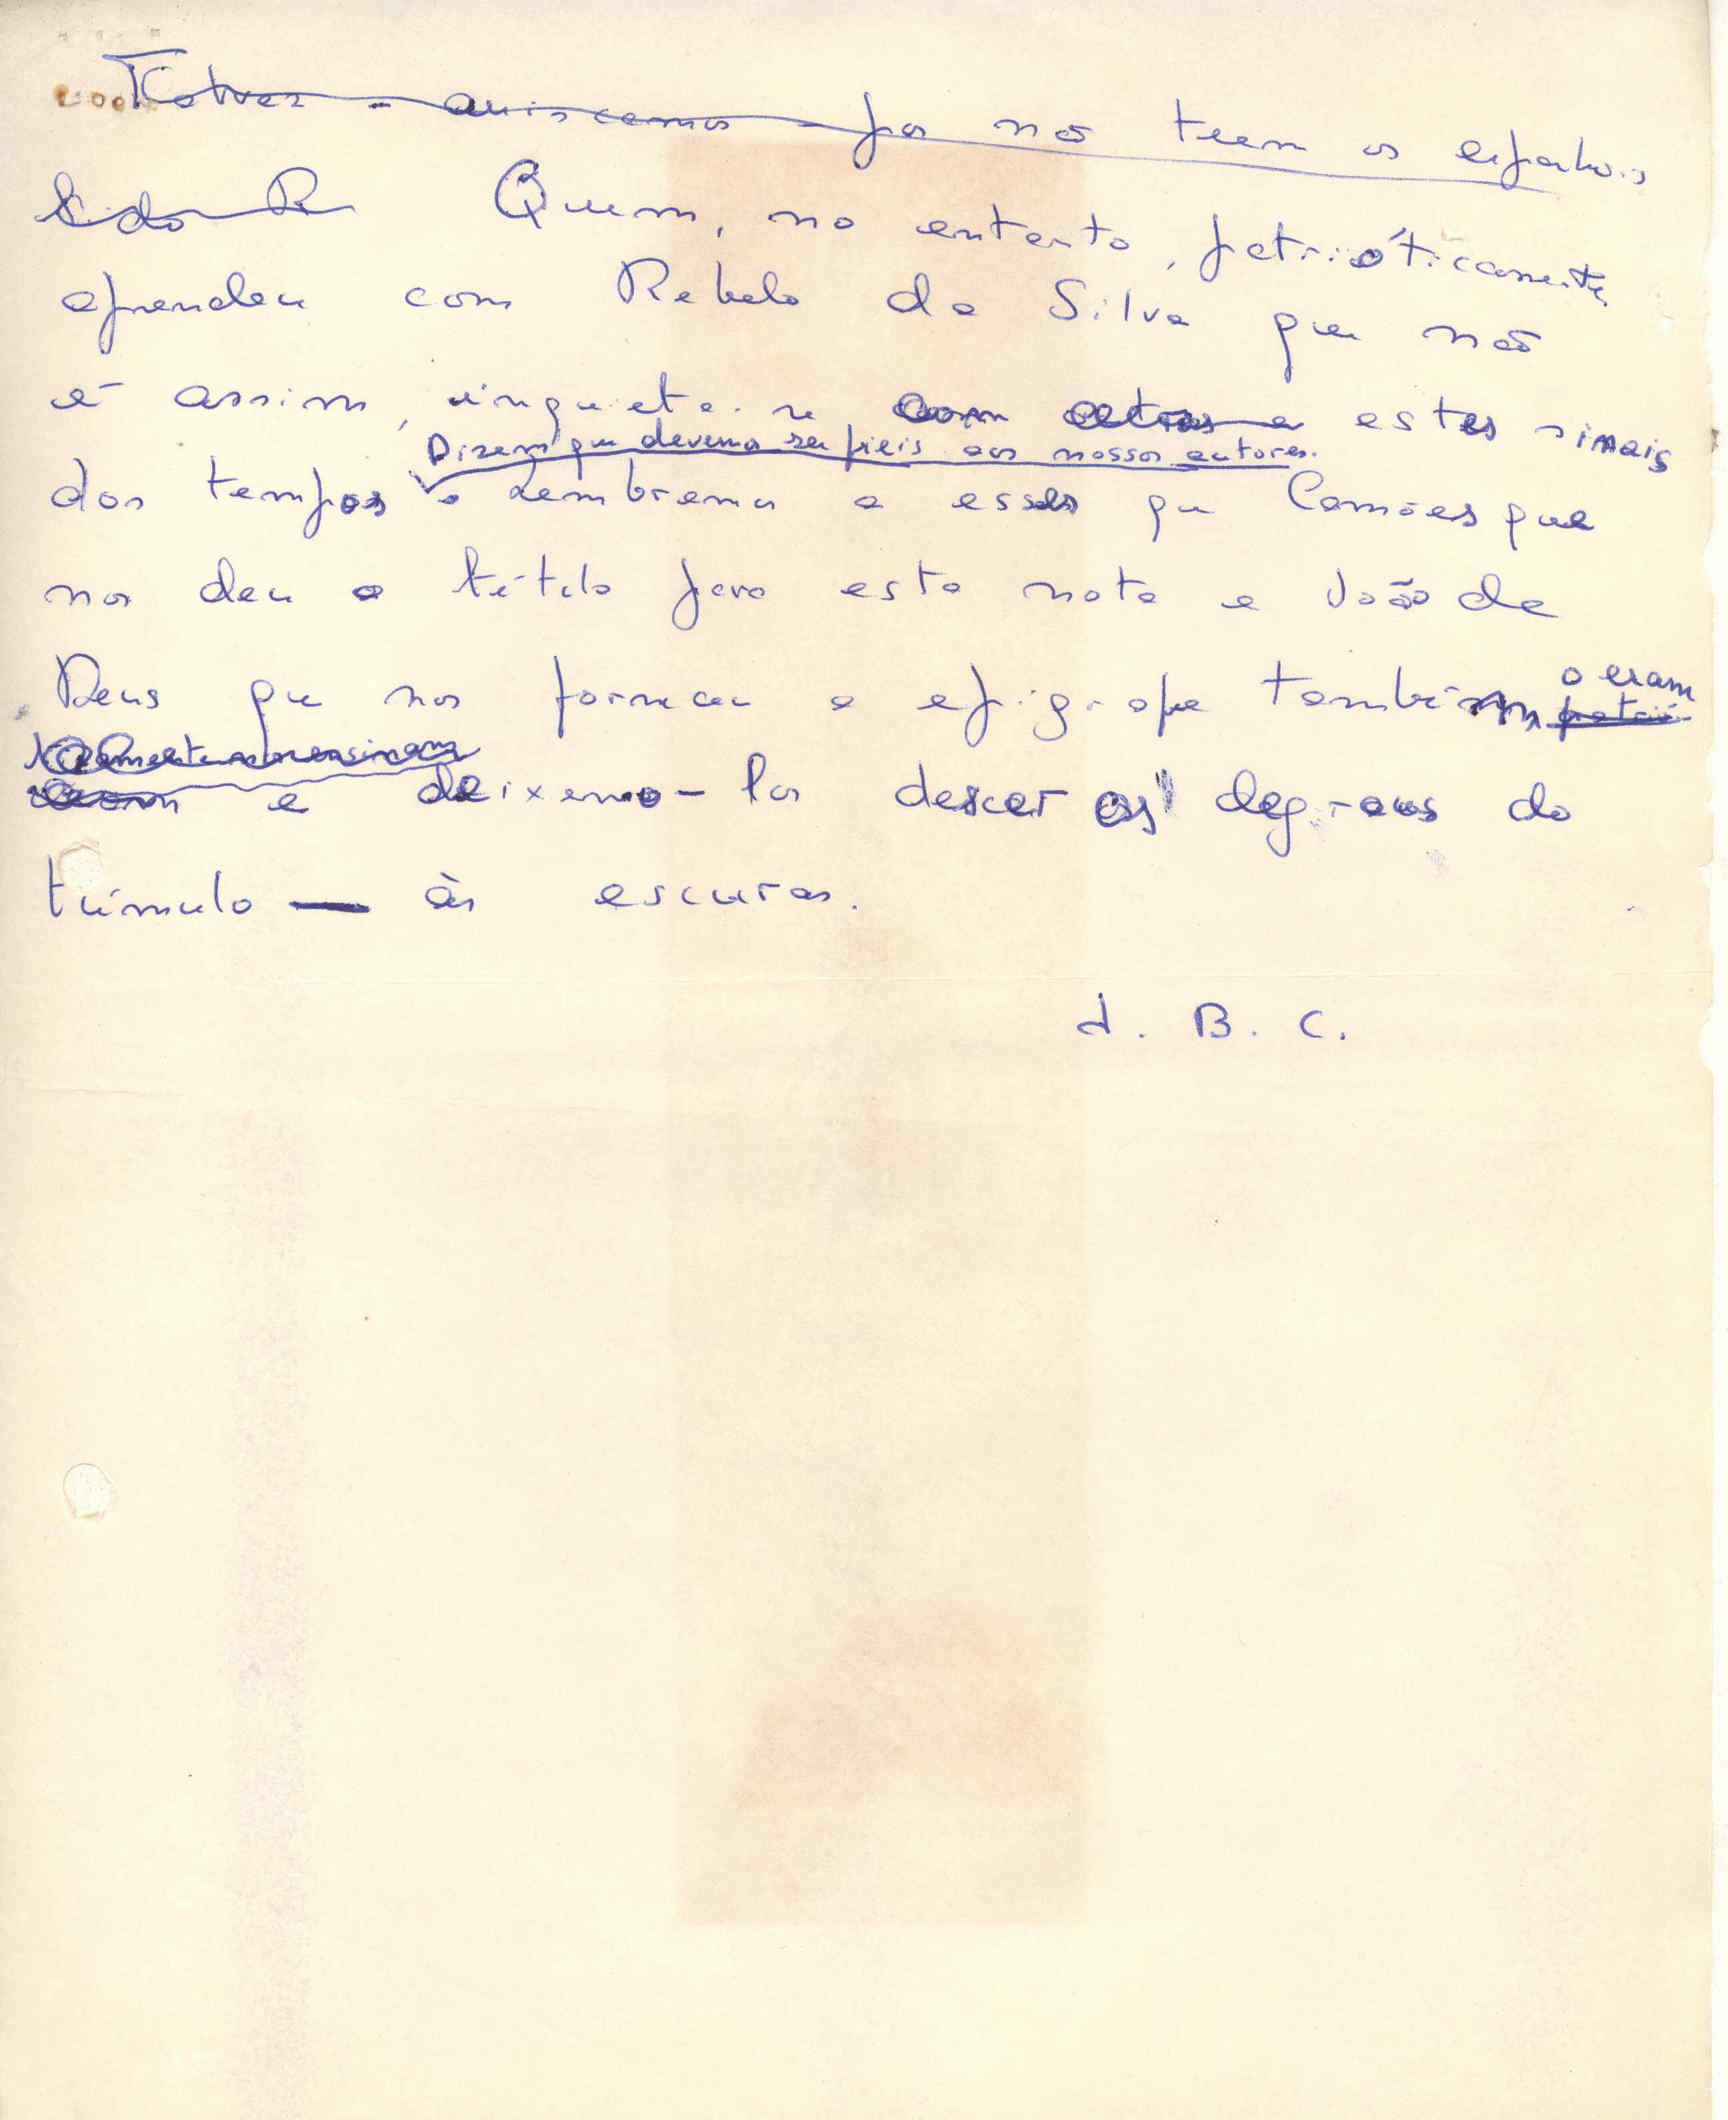 Talvez - arriscamos - por não terem os espanhois
lido R Quem, no entanto, patrióticamente,
aprendeu com Rebelo da Silva que não
é assim, inquieta-se com outros e estes sinais
Dizem que devemos ser fieis aos nossos autores.
dos tempos e lembremos a esses que Camões que
nos deu o título para esta nota e João de
Deus que nos forneceu a epígrafe também o eram
patrió-
e deixemo-los descer os degraus do
túmulo — às escuras.
J. B. C.